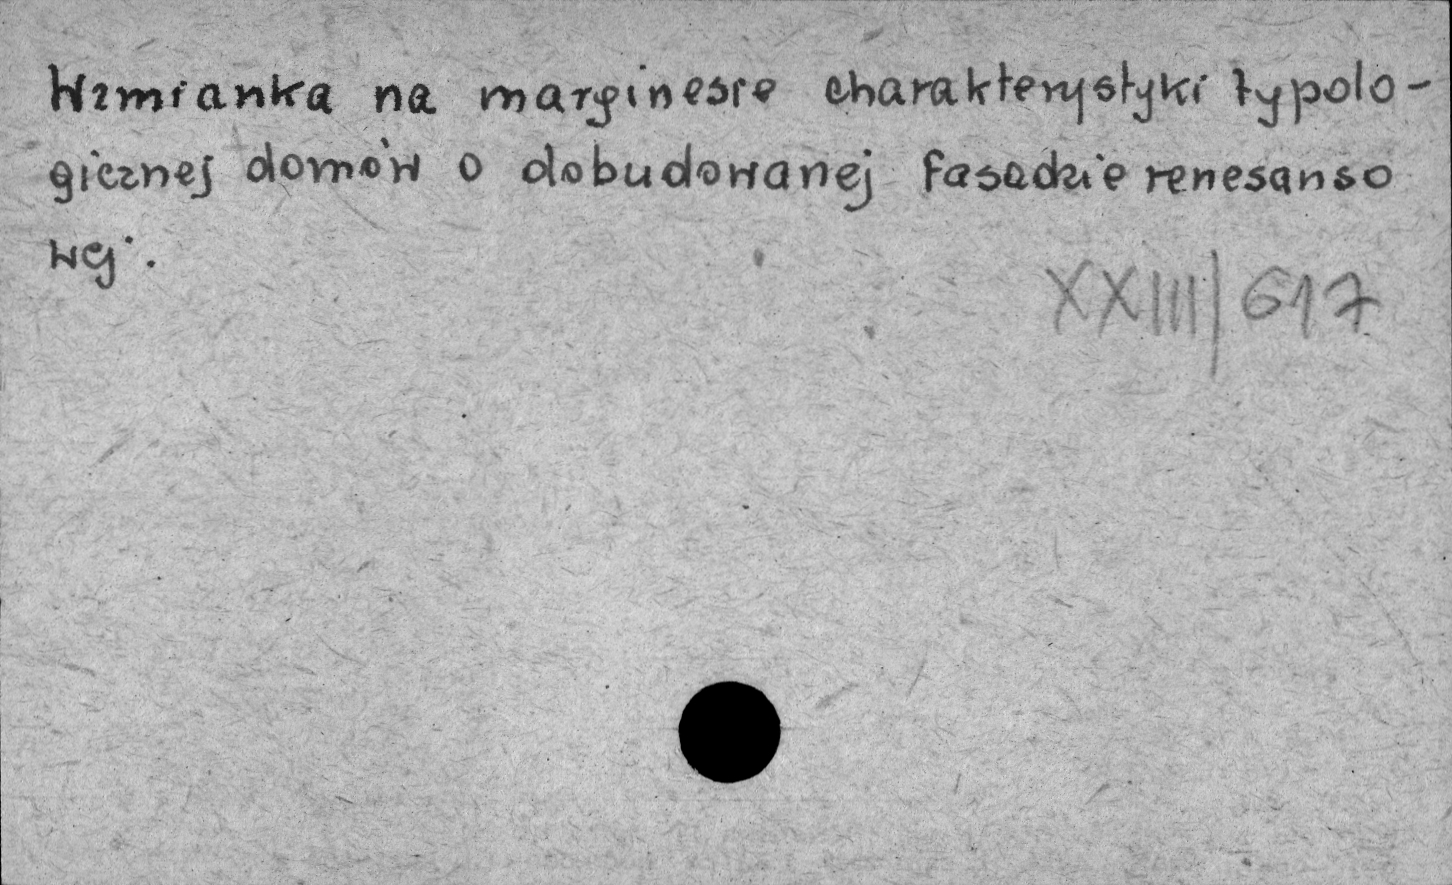 Wzmianka na marginesie charakterystyki typolo-
gicznej domów o dobudowanej fasadzie renesanso
wej.
XXIII/617